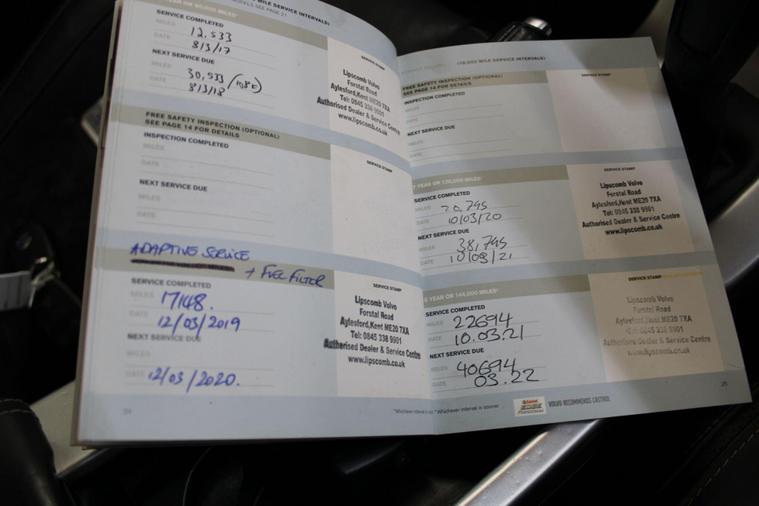 MILE SERVICE INTERVALS)
SERVICE COMPLETED
MILES 12,533
DATE 8/3/17
NEXT SERVICE DUE
MILES 30,533
DATE 8/3/18
SERVICE STAMP
Lipscomb Volvo
Forstal Road
Aylesford,Kent ME20 7XA
Tel: 0845 338 9901
Authorised Dealer & Service Centre
www.lipscomb.co.uk
FREE SAFETY INSPECTION (OPTIONAL)
SEE PAGE 14 FOR DETAILS
INSPECTION COMPLETED
MILES
DATE
NEXT SERVICE DUE
MILES
DATE
SERVICE STAMP
ADAPTIVE SERVICE
+ FUEL FILTER
SERVICE COMPLETED
MILES 17148.
DATE 12/03/2019
NEXT SERVICE DUE
MILES
DATE 12/03/2020.
SERVICE STAMP
Lipscomb Volvo
Forstal Road
Aylesford,Kent ME20 7XA
Tel: 0845 338 9901
Authorised Dealer & Service Centre
www.lipscomb.co.uk
24
*Whichever interval is sooner
(18,000 MILE SERVICE INTERVALS)
FREE SAFETY INSPECTION (OPTIONAL)
SEE PAGE 14 FOR DETAILS
INSPECTION COMPLETED
MILES
DATE
NEXT SERVICE DUE
MILES
DATE
SERVICE STAMP
YEAR OR 126,000 MILES*
SERVICE COMPLETED
MILES 20,795
DATE 10/03/20
NEXT SERVICE DUE
MILES 38,795
DATE 10/03/21
SERVICE STAMP
Lipscomb Volvo
Forstal Road
Aylesford,Kent ME20 7XA
Tel: 0845 338 9901
Authorised Dealer & Service Centre
www.lipscomb.co.uk
YEAR OR 144,000 MILES*
SERVICE COMPLETED
MILES 22694
DATE 10.03.21
NEXT SERVICE DUE
MILES 40694
DATE 03.22
SERVICE STAMP
Lipscomb Volvo
Forstal Road
Aylesford,Kent ME20 7XA
Tel: 0845 338 9901
Authorised Dealer & Service Centre
www.lipscomb.co.uk
*Whichever interval is sooner
Castrol
EDGE
PROFESSIONAL
VOLVO RECOMMENDS CASTROL
25